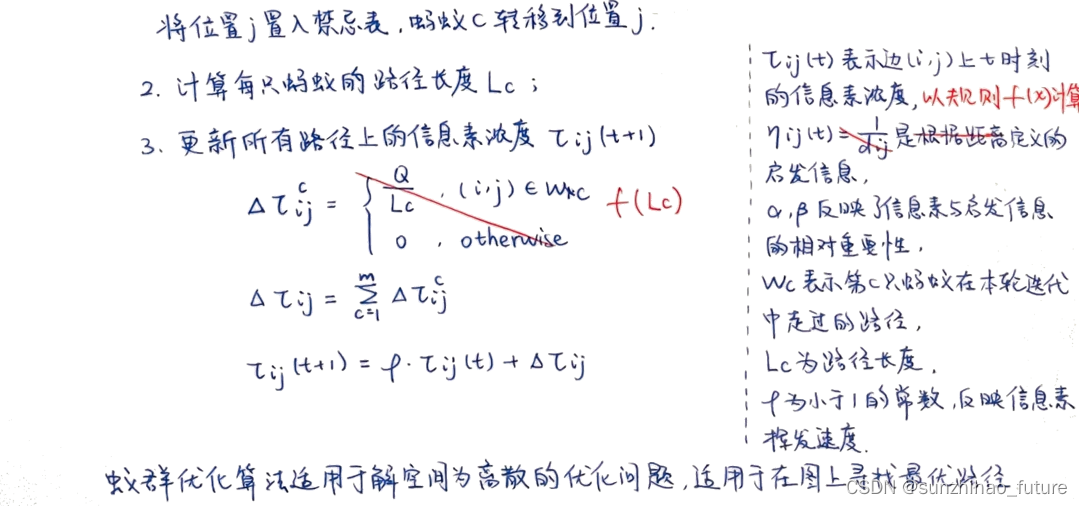 将位置j置入禁忌表,蚂蚁C转移到位置j.
2. 计算每只蚂蚁的路径长度Lc;
3. 更新所有路径上的信息素浓度 τij(t+1)
Δτij^c = { Q/Lc , (i,j)∈W*c f(Lc)
0 , otherwise
Δτij = Σ_{c=1}^{m} Δτij^c
τij(t+1) = ρ·τij(t) + Δτij
τij(t)表示边(i,j)上t时刻
的信息素浓度,以规则f(x)计算
ηij(t)=1/dij是根据距离定义的
启发信息,
α,β反映了信息素与启发信息
的相对重要性,
Wc表示第C只蚂蚁在本轮迭代
中走过的路径,
Lc为路径长度,
ρ为小于1的常数,反映信息素
挥发速度.
蚁群优化算法适用于解空间为离散的优化问题,适用于在图上寻找最优路径
CSDN @sunzhihao_future